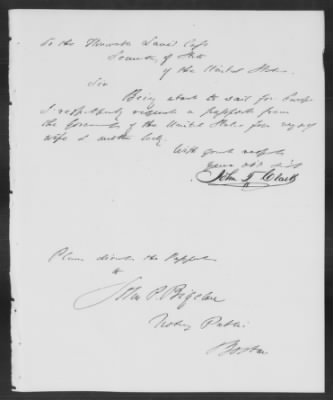 To the Honorable Lewis Cass
Secretary of State
of the United States
Sir
Being about to sail for Europe
I respectfully request a passport from
the Government of the United States for myself
wife & mother
With great respect
Your obt svt
John T Clark
Please direct the Passport
to
John P. Bigelow
Notary Public
Boston